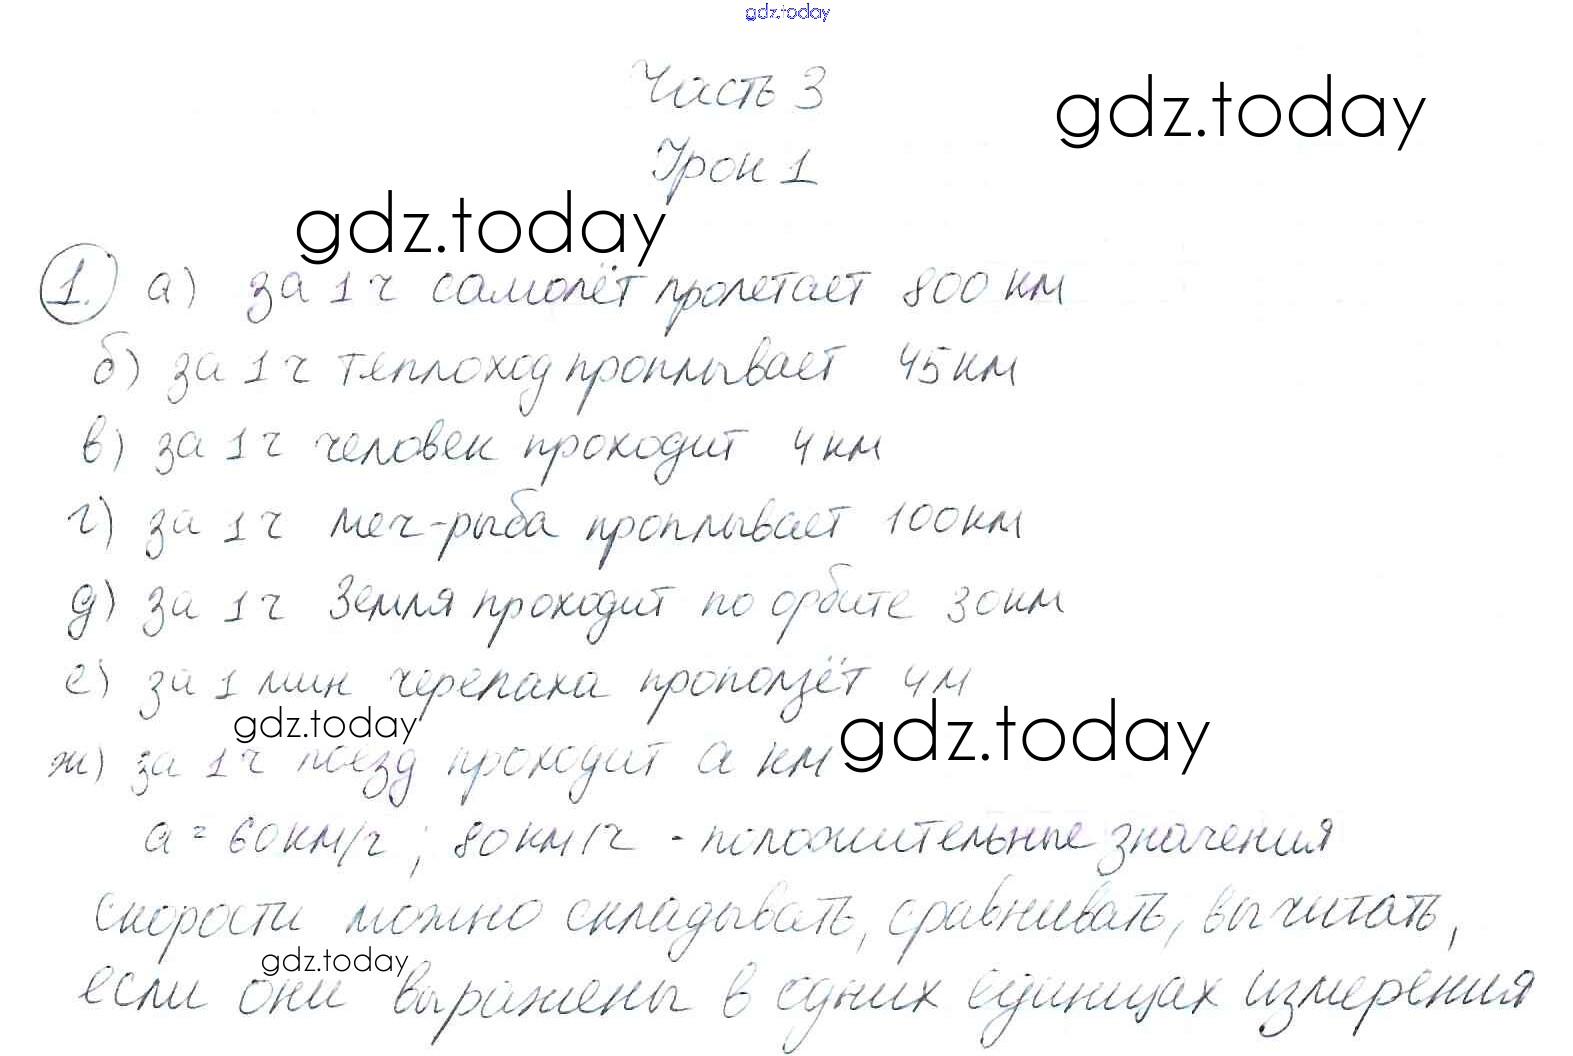 gdz.today
Часть 3
gdz.today
Урок 1
gdz.today
1. а) за 1 ч самолёт пролетает 800 км
б) за 1 ч теплоход проплывает 45 км
в) за 1 ч человек проходит 4 км
г) за 1 ч меч-рыба проплывает 100 км
д) за 1 ч Земля проходит по орбите 30 км
е) за 1 мин черепаха проползёт 4 м
gdz.today
gdz.today
ж) за 1 ч поезд проходит а км
а = 60 км/ч ; 80 км/ч - положительные значения
скорости можно складывать, сравнивать, вычитать,
gdz.today
если они выражены в одних единицах измерения